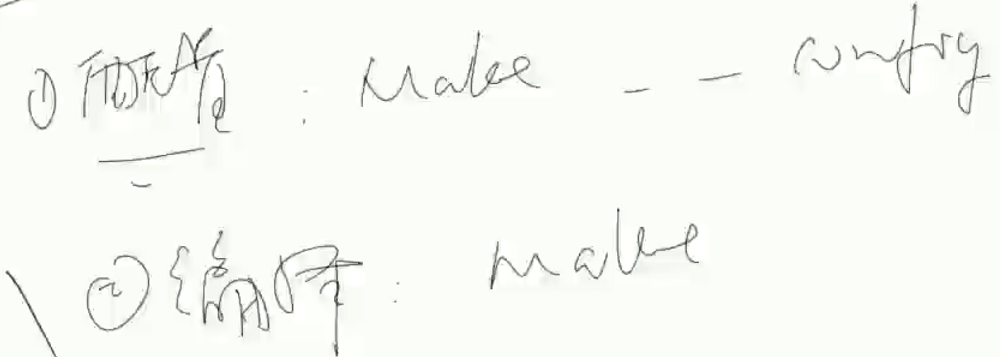 ① 配置: Make _ _ config
② 编译: make